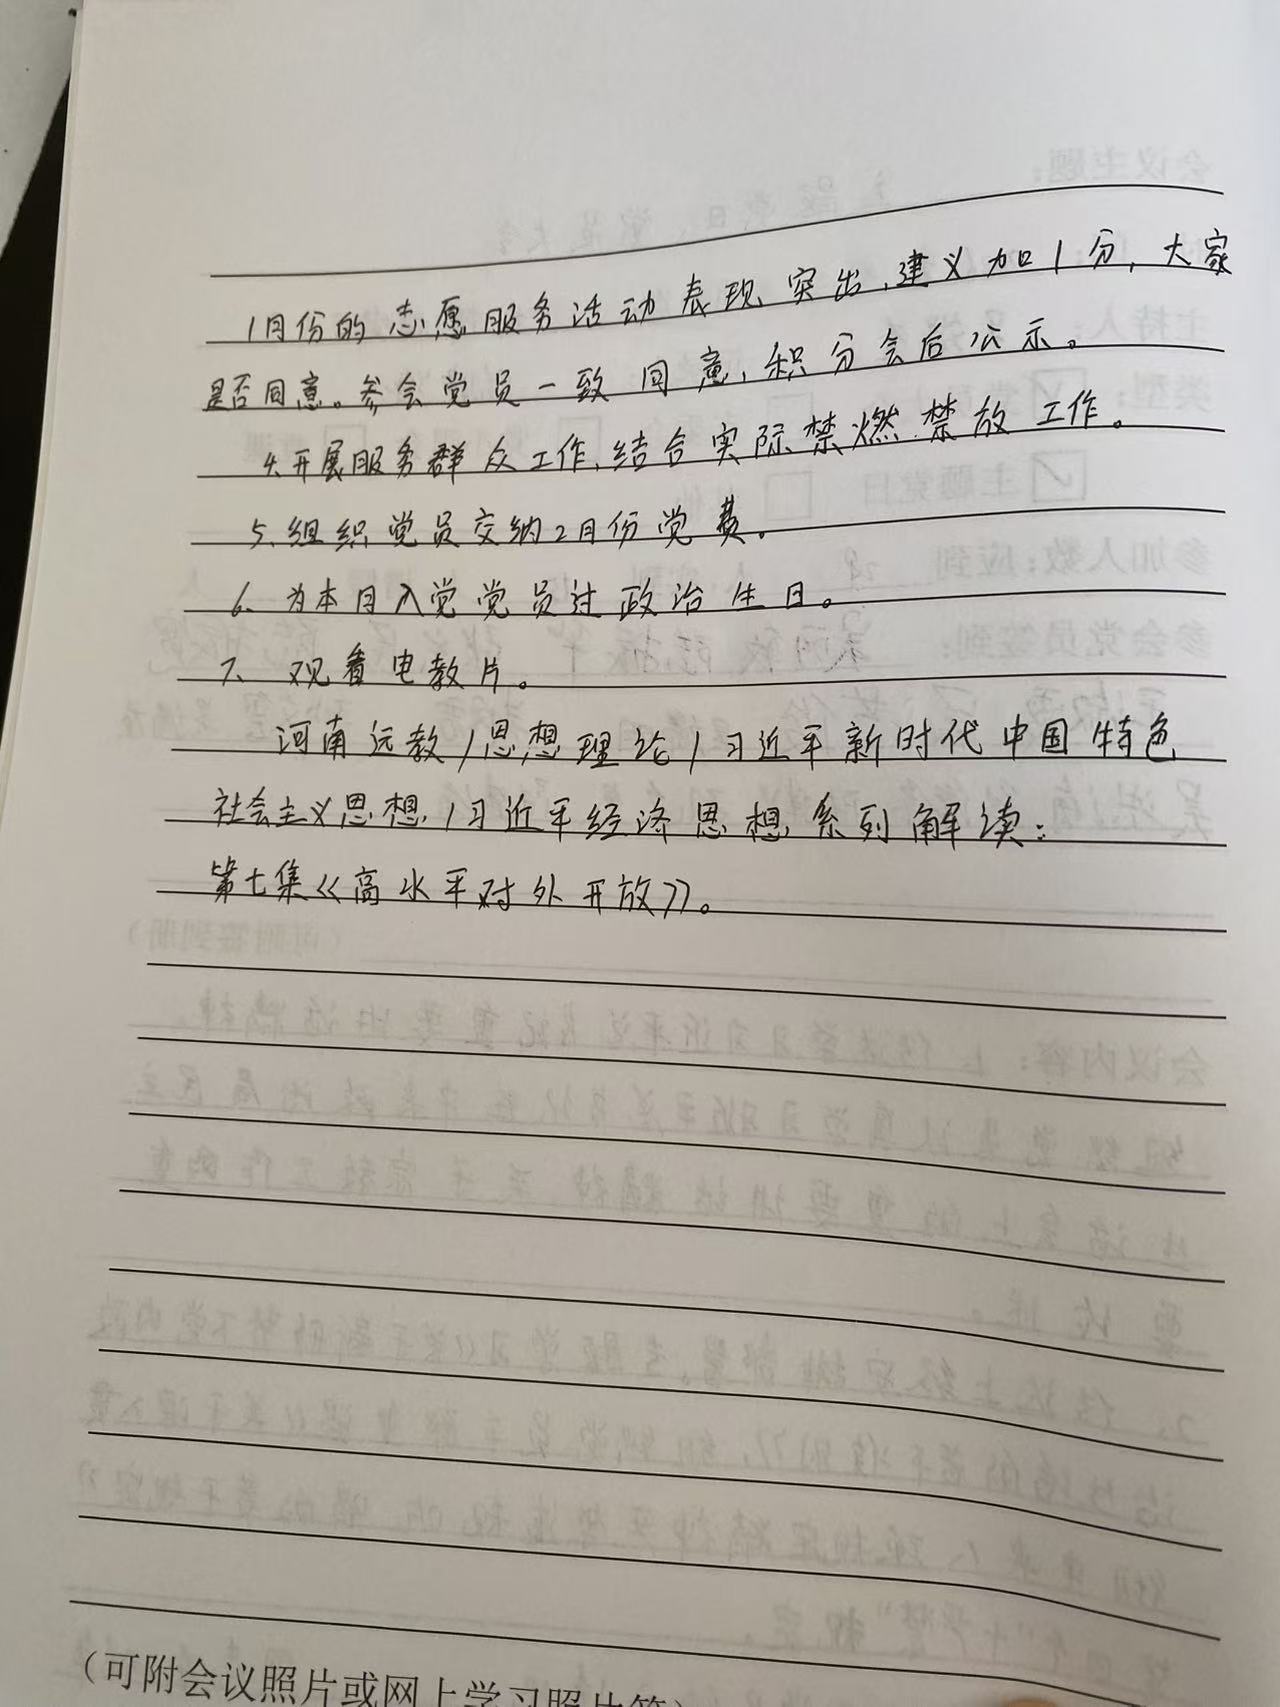 1月份的志愿服务活动表现突出,建议加1分,大家
是否同意。参会党员一致同意,积分会后公示。
4.开展服务群众工作,结合实际禁燃禁放工作。
5.组织党员交纳2月份党费。
6、为本月入党党员过政治生日。
7、观看电教片。
河南远教/思想理论/习近平新时代中国特色
社会主义思想/习近平经济思想系列解读:
第七集《高水平对外开放》。
(可附会议照片或网上学习照片等)